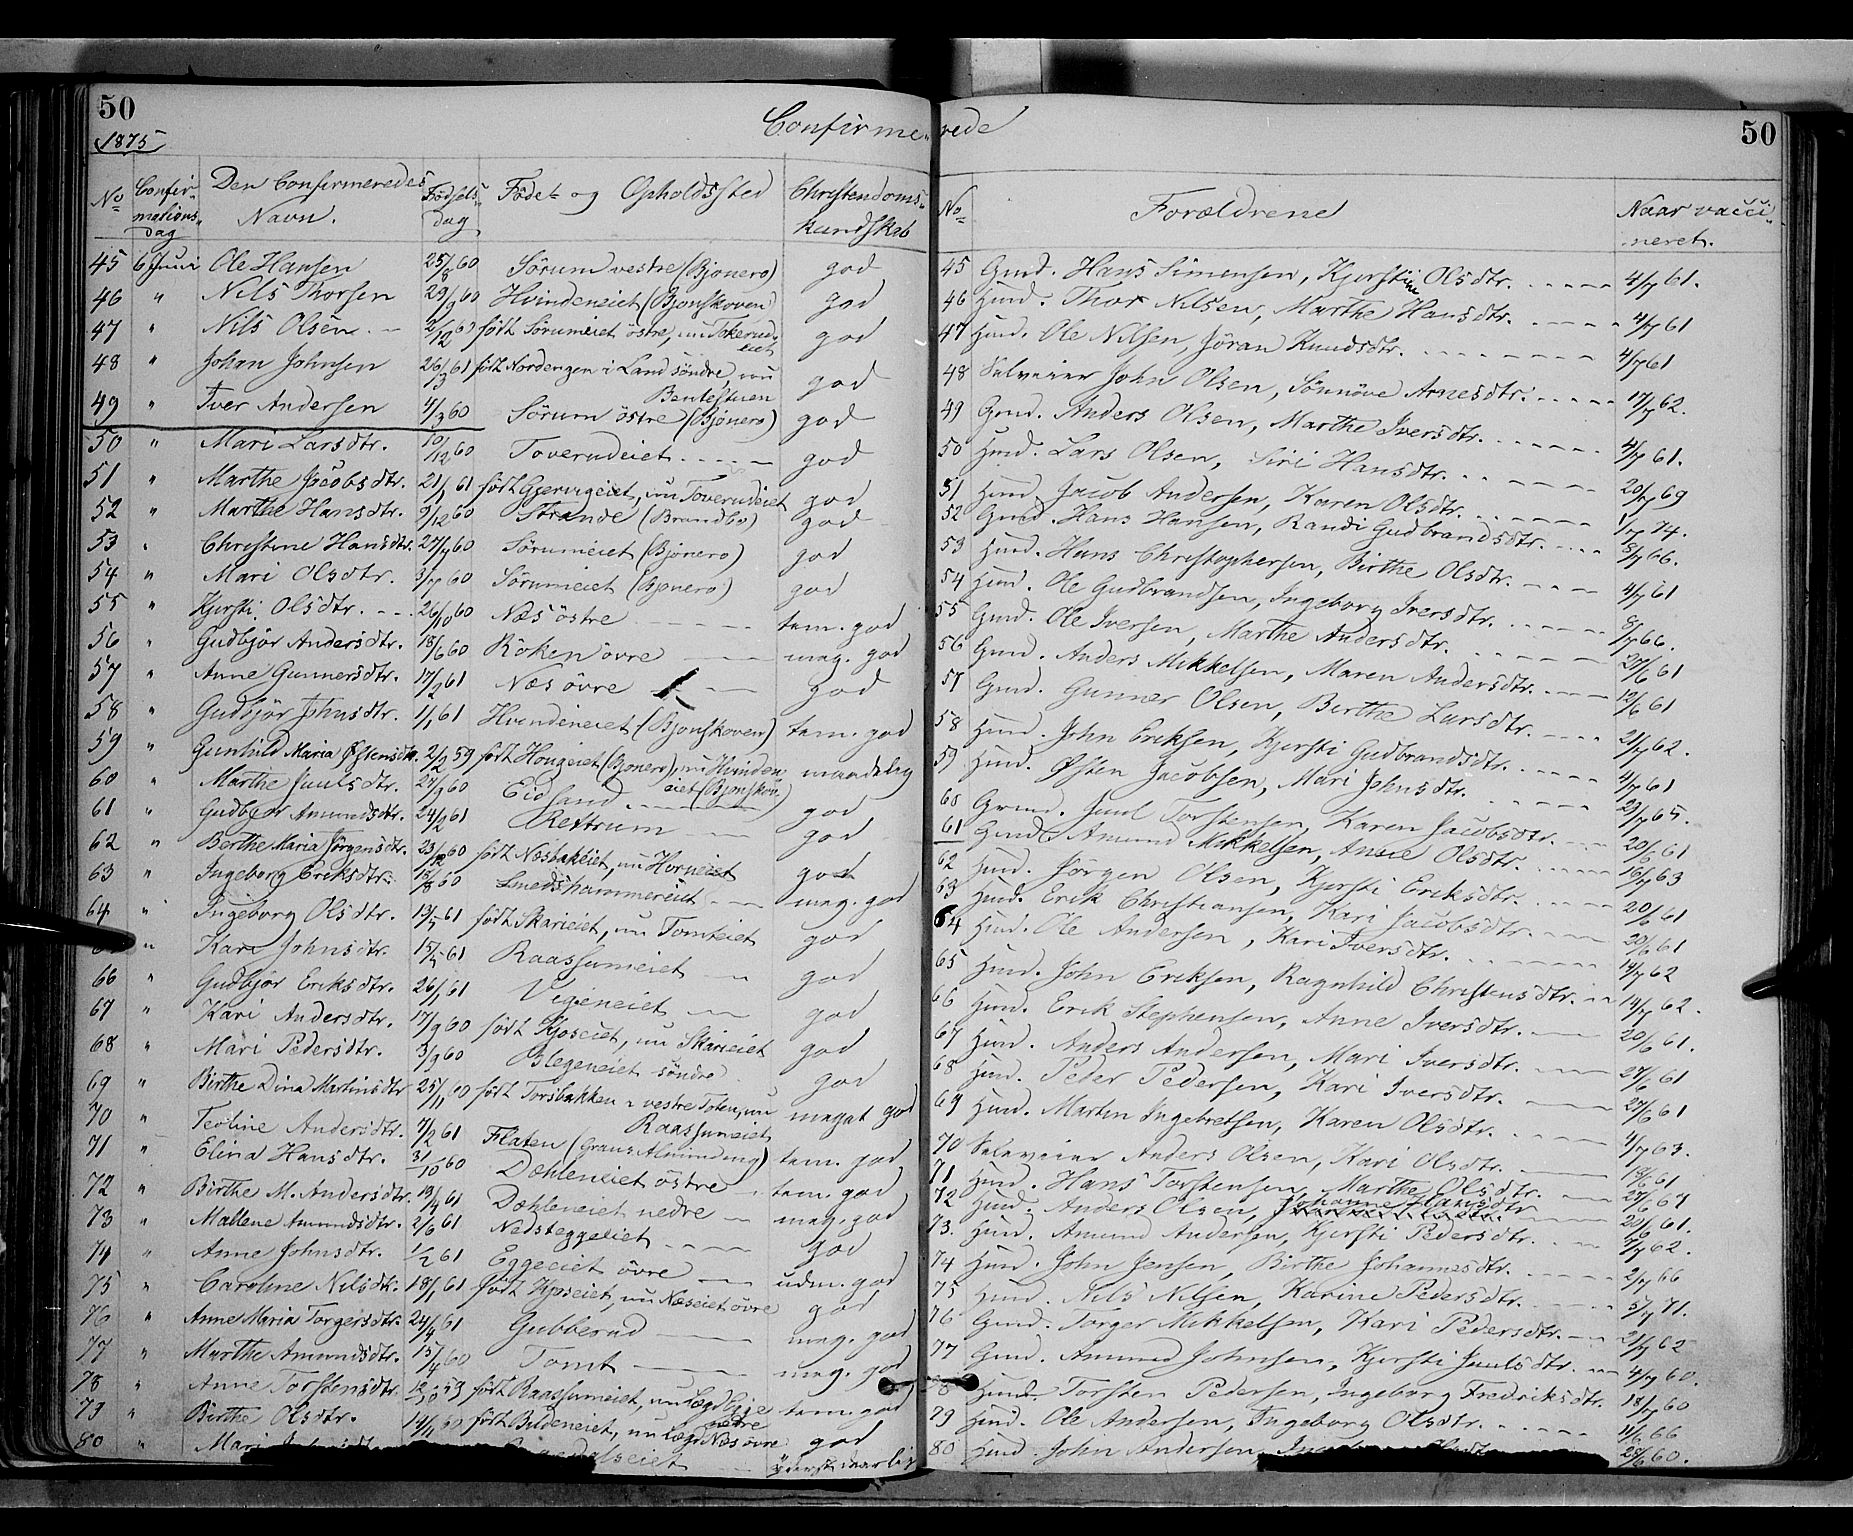 50
1875
Confirme-
No
Confir-
mations-
dag
Den Confirmeredes
Navn.
Fødsels-
dag
Føde- og Opholdssted
Christendoms-
kundskab
45 6 Juni Ole Hansen 25/8 60 Sørum vestre (Bjonero) god
46 " Nils Thorsen 29/9 60 Hvindeneiet (Bjonskoven) god
47 " Nils Olsen 2/12 60 født Sørumeiet østre, nu Tokerud-
eiet god
48 " Johan Johnsen 26/3 61 født Nordengen i Land søndre, nu
Bentestuen god
49 " Iver Andersen 4/3 60 Sørum østre (Bjonero) god
50 " Mari Larsdtr. 10/12 60 Toverudeiet god
51 " Marthe Jacobsdtr. 21/1 61 født Gjervigeiet, nu Toverudeiet god
52 " Marthe Hansdtr. 9/12 60 Strande (Brandbo) god
53 " Christine Hansdtr. 27/7 60 Sørumeiet (Bjonero) god
54 " Mari Olsdtr. 3/7 60 Sørumeiet (Bjonero) god
55 " Kjersti Olsdtr. 26/10 60 Næs østre tem. god
56 " Gudbjør Andersdtr. 18/6 60 Røken øvre mag. god
57 " Anne Gunnersdtr. 17/2 61 Næs øvre god
58 " Gudbjør Johnsdtr. 1/1 61 Hvindeneiet (Bjonskoven) tem. god
59 " Gunhild Maria Østensdtr. 2/2 59 født Hougeiet (Bjonero), nu Hvinden-
eiet (Bjonskov.) maadelig
60 " Marthe Juulsdtr. 27/9 60 Eidsand god
61 " Gudbjør Amundsdtr. 24/2 61 Rettrum god
62 " Berthe Maria Jørgensdtr. 23/12 60 født Næsbakeiet, nu Horneiet god
63 " Ingeborg Eriksdtr. 15/8 60 Smedshammereiet mag. god
64 " Ingeborg Olsdtr. 13/5 61 født Skarieiet, nu Tomteiet god
" Kari Johnsdtr. 15/5 61 Raassumeiet god
66 " Gudbjør Eriksdtr. 26/1 61 Vigeneiet god
67 " Kari Andersdtr. 17/9 60 født Kjoseiet, nu Skarieiet god
68 " Mari Pedersdtr. 3/9 60 Blegeneiet søndre god
69 " Birthe Dina Martinsdtr 25/11 60 født Torsbakken i vestre Toten, nu
Raassumeiet meget god
70 " Teoline Andersdtr. 7/2 61 Flaten (Grans Almending) tem. god
71 " Elina Hansdtr. 31/10 60 Dæhleneiet østre tem. god
72 " Birthe M. Andersdtr. 19/4 61 Dæhleneiet nedre mag. god
73 " Mallene Amundsdtr. 2/6 61 Nedsteggeeiet god
74 " Anne Johnsdtr. 1/2 61 Eggeeiet øvre udm. god
75 " Caroline Nilsdtr. 18/1 61 født Kjoseiet, nu Næseiet øvre god
76 " Anne Maria Torgersdtr. 24/4 61 Gubberud mag. god
77 " Marthe Amundsdtr. 15/4 60 Tomt mag. god
78 " Anne Torstensdtr. 12/10 59 født Raassumeiet, nu Lægd Egge
nedre tem. god
79 " Birthe Olsdtr. 14/11 60 født Buldeneiet, nu Lægd Næs øvre god
80 " Mari
50
rede
No
Forældrene
Naar vacci-
neret.
45 Gmd. Hans Simensen, Kjerstine Olsdtr. 4/7 61.
46 Hmd. Thor Nilsen, Marthe Hansdtr. 4/7 61
47 Hmd. Ole Nilsen, Jøran Knudsdtr. 4/7 61
48 Selveier John Olsen, Sønnøve Arnesdtr. 17/7 62.
49 Gmd. Anders Olsen, Marthe Iversdtr. 4/7 61.
50 Hmd. Lars Olsen, Siri Hansdtr. 20/7 69
51 Hmd. Jacob Andersen, Karen Olsdtr. 1/7 74.
52 Gmd. Hans Hansen, Randi Gudbrandsdtr. 8/7 66.
53 Hmd. Hans Christophersen, Birthe Olsdtr. 4/7 61
54 Hmd. Ole Gudbrandsen, Ingeborg Iversdtr. 8/7 66.
55 Gmd. Ole Iversen, Marthe Andersdtr. 27/6 61
56 Gmd. Anders Mikkelsen, Maren Andersdtr. 12/6 61
57 Gmd. Gunner Olsen, Berthe Larsdtr. 2/7 62.
58 Hmd. John Eriksen, Kjersti Gudbrandsdtr. 4/7 61
59 Hmd. Østen Jacobsen, Mari Johnsdtr. 29/7 65.
60 Gmd. Juul Torstensen, Karen Jacobsdtr. 20/6 61
61 Gmd. Amund Mikkelsen, Anne Olsdtr. 16/7 63
62 Hmd. Jørgen Olsen, Kjersti Eriksdtr. 20/6 61
63 Hmd. Erik Christiansen, Kari Jacobsdtr. 20/6 61
64 Hmd. Ole Andersen, Kari Iversdtr. 14/7 62
65 Hmd. John Eriksen, Ragnhild Christensdtr. 14/7 62.
66 Hmd. Erik Stephensen, Anne Iversdtr. 20/6 61.
67 Hmd. Anders Andersen, Mari Iversdtr. 27/6 61
68 Hmd. Peder Pedersen, Kari Iversdtr. 27/6 61
69 Hmd. Martin Ingebretsen, Karen Olsdtr. 4/7 63.
70 Selveier Anders Olsen, Kari Olsdtr. 18/6 61
71 Hmd. Hans Torstensen, Marthe Olsdtr. 27/6 67
72 Hmd. Anders Olsen, Johanne Hansdtr 20/6 61.
73. Hmd. Amund Andersen, Kjersti Pedersdtr. 7/7 62.
74 Hmd. John Jensen, Birthe Johannesdtr. 2/7 66
75 Hmd. Nils Nilsen, Karine Pedersdtr. 5/7 71.
76 Gmd. Torger Mikkelsen, Kari Pedersdtr. 2/7 62
77 Gmd. Amund Johnsen, Kjersti Juulsdtr. 4/7 60.
78 Hmd. Torsten Pedersen, Ingeborg Fredriksdtr. 18/7 60
79 Hmd. Ole Andersen, Ingeborg Olsdtr. 11/6 66
80 Hmd. John Andersen, 28/6 60.